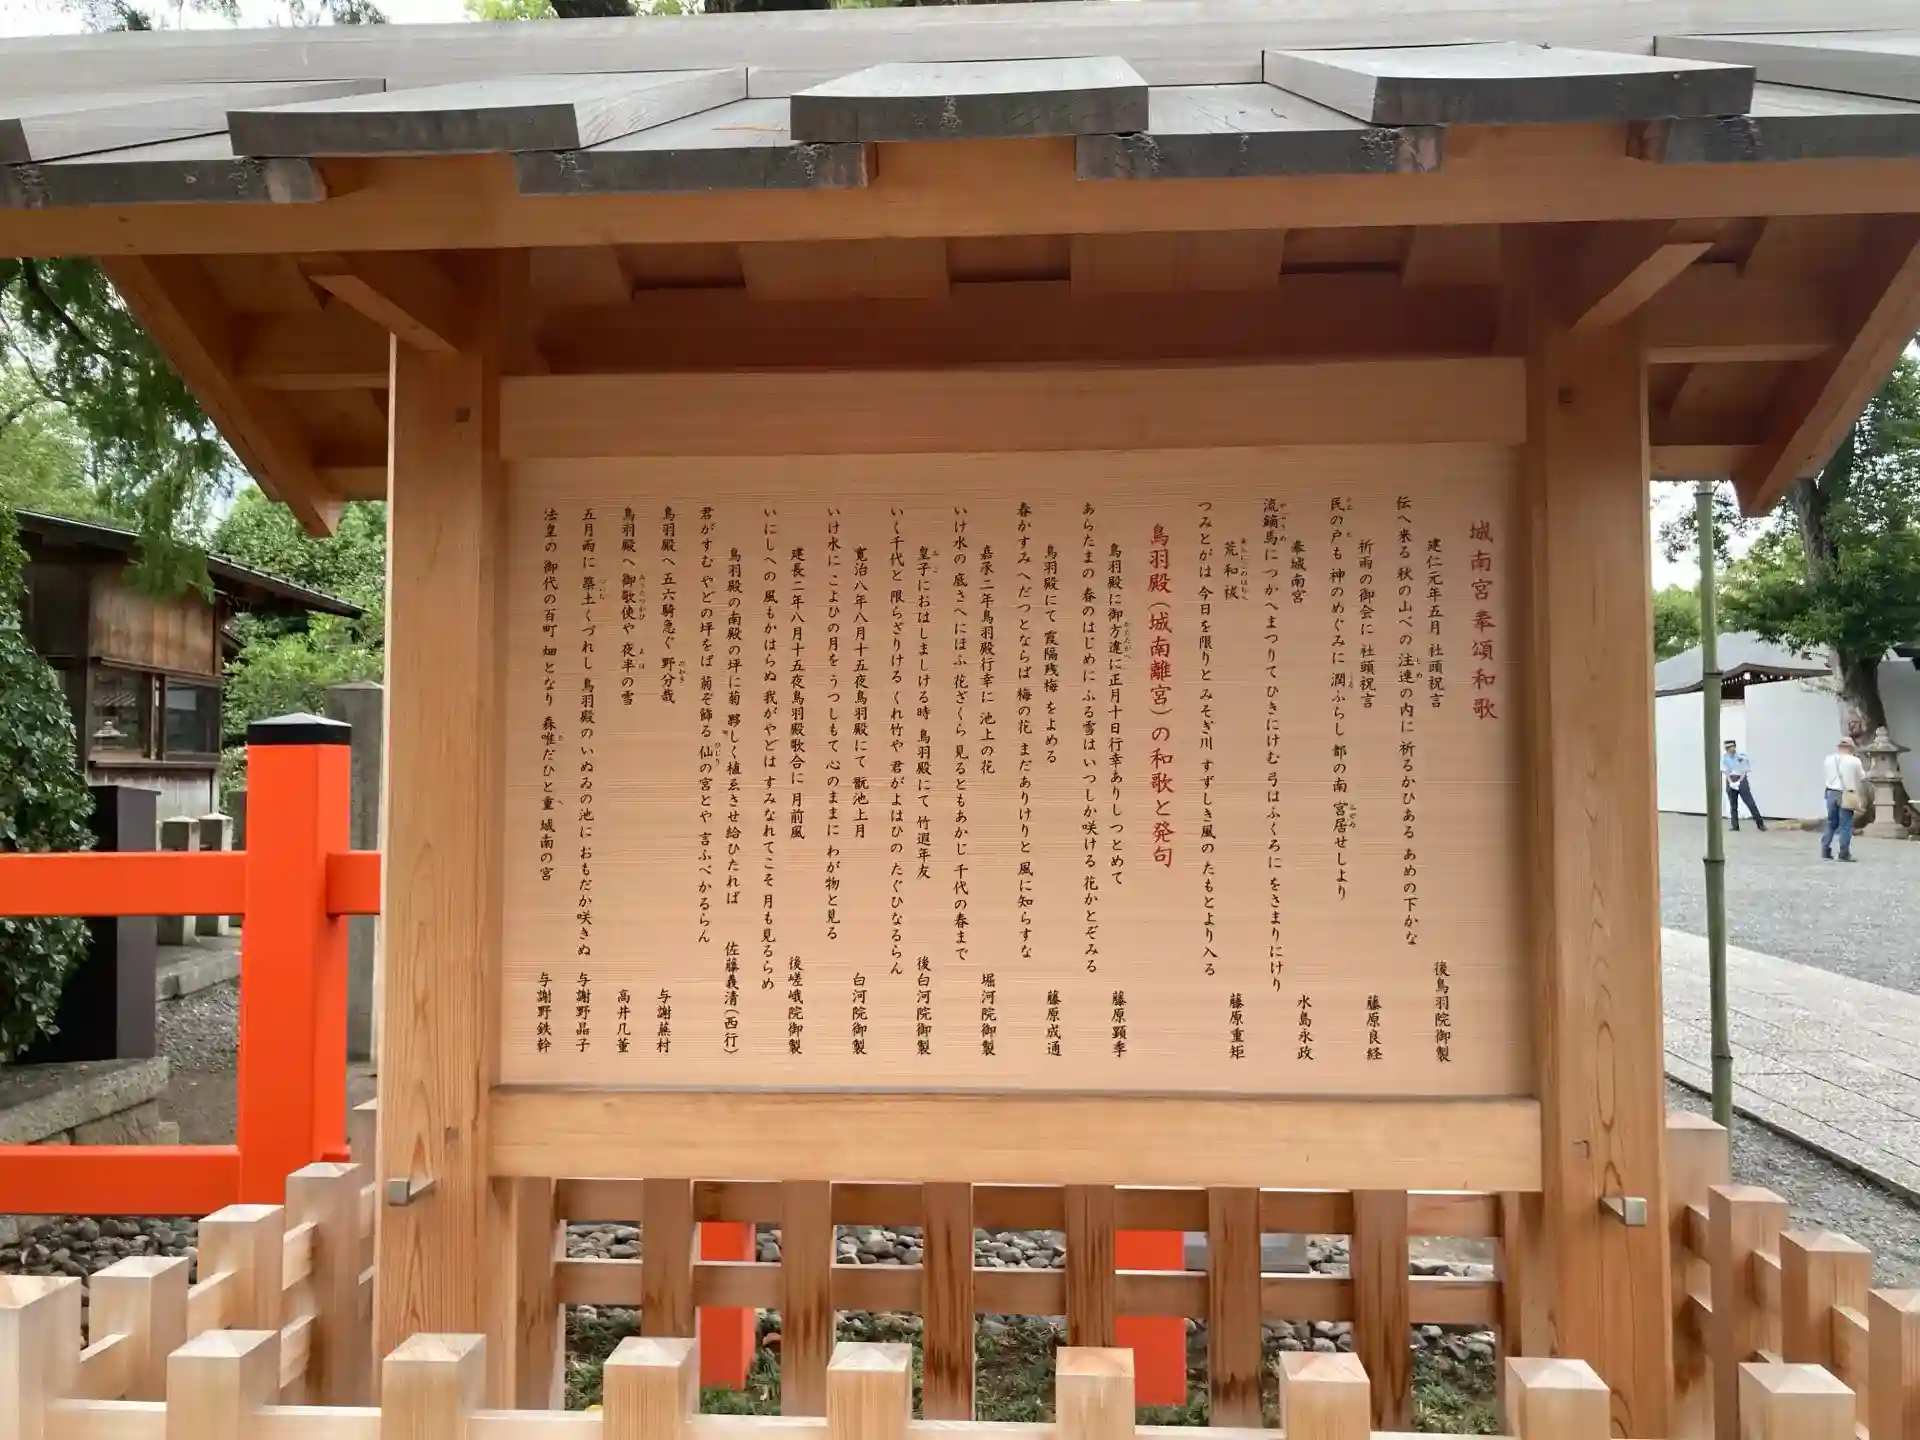 城南宮奉頌和歌
建仁元年五月 社頭祝言
後鳥羽院御製
伝へ来る 秋の山べの 注連の内に 祈るかひある あめの下かな
祈雨の御会に 社頭祝言
藤原良経
民の戸も 神のめぐみに 潤ふらし 都の南 宮居せしより
奉城南宮
水島永政
流鏑馬に つかへまつりて ひきにけむ 弓はふくろに をさまりにけり
荒和祓
藤原重矩
つみとがは 今日を限りと みそぎ川 すずしき風の たもとより入る
鳥羽殿(城南離宮)の和歌と発句
鳥羽殿に御方違に正月十日行幸ありしつとめて
藤原顕季
あらたまの 春のはじめに ふる雪は いつしか咲ける 花かとぞみる
鳥羽殿にて 霞隔残梅 をよめる
藤原成通
春かすみ へだつとならば 梅の花 まだありけりと 風に知らすな
嘉承二年鳥羽殿行幸に 池上の花
堀河院御製
いけ水の 底さへにほふ 花ざくら 見るともあかじ 千代の春まで
皇子におはしましける時 鳥羽殿にて 竹遐年友
後白河院御製
いく千代と 限らざりける くれ竹や 君がよはひの たぐひなるらん
寛治八年八月十五夜鳥羽殿にて 翫池上月
白河院御製
いけ水に こよひの月を うつしもて 心のままに わが物と見る
建長二年八月十五夜鳥羽殿歌合に 月前風
後嵯峨院御製
いにしへの 風もかはらぬ 我がやどは すみなれてこそ 月も見るらめ
鳥羽殿の南殿の坪に菊 夥しく植ゑさせ給ひたれば
佐藤義清(西行)
君がすむ やどの坪をば 菊ぞ飾る 仙の宮とや 言ふべかるらん
鳥羽殿へ 五六騎急ぐ 野分哉
与謝蕪村
鳥羽殿へ 御歌使や 夜半の雪
高井几董
五月雨に 築土くづれし 鳥羽殿の いぬゐの池に おもだか咲きぬ
与謝野晶子
法皇の 御代の百町 畑となり 森唯だひと重 城南の宮
与謝野鉄幹